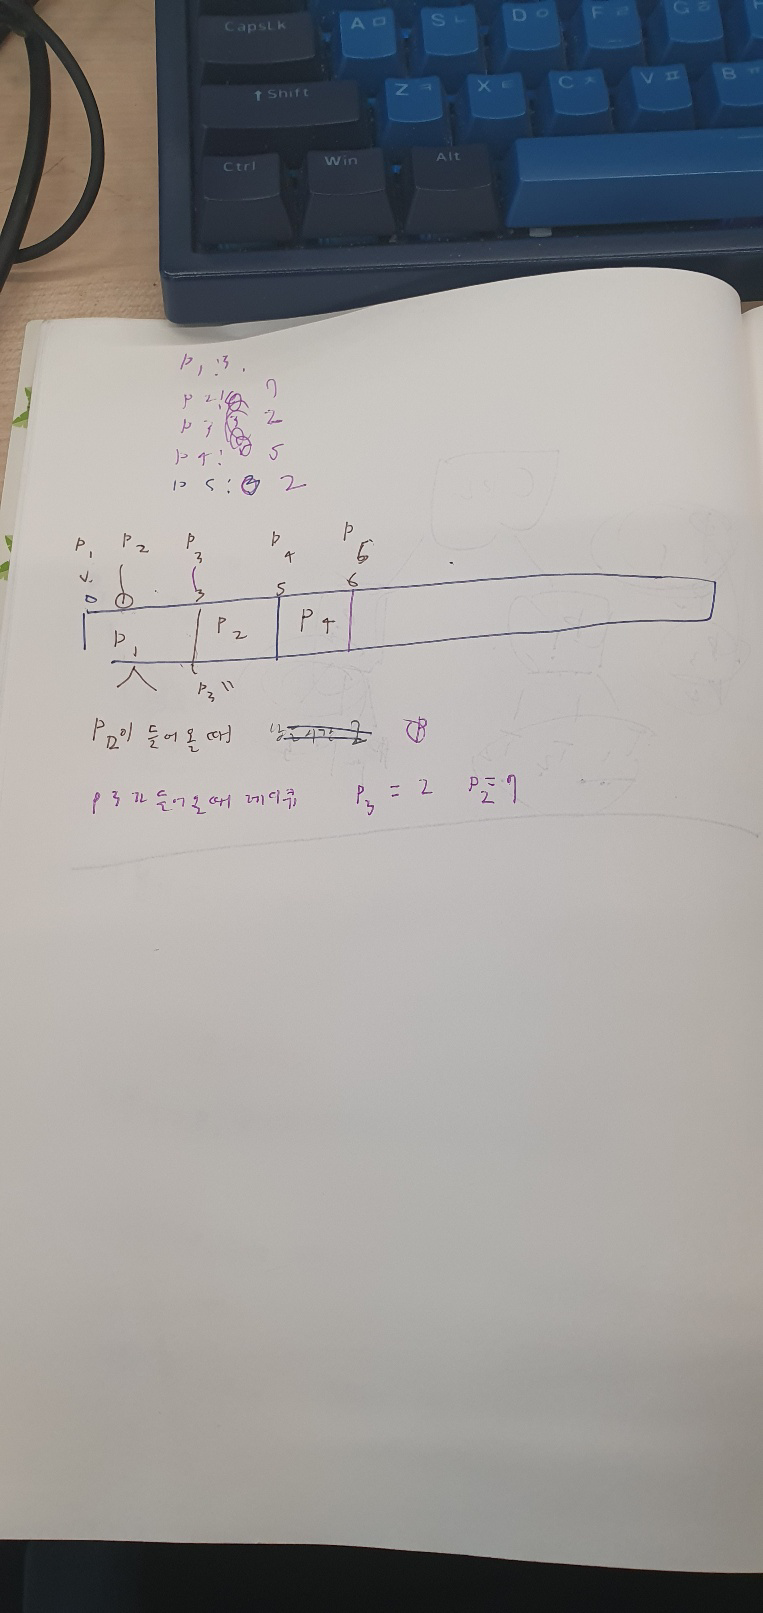 CapsLk A ㅁ S ㄴ D ㅇ F ㄹ G ㅎ
↑ Shift Z ㅋ X ㅌ C ㅊ V ㅍ B ㅠ
Ctrl Win Alt
P1 : 3.
P2: 7
P3 2
P4: 5
P5: 2
P1 P2 P3 P4 P5
0 1 3 5 6
P1 P2 P4
P3
P2이 들어올 때
P3가 들어올 때 레디큐 P3 = 2 P2 = 7